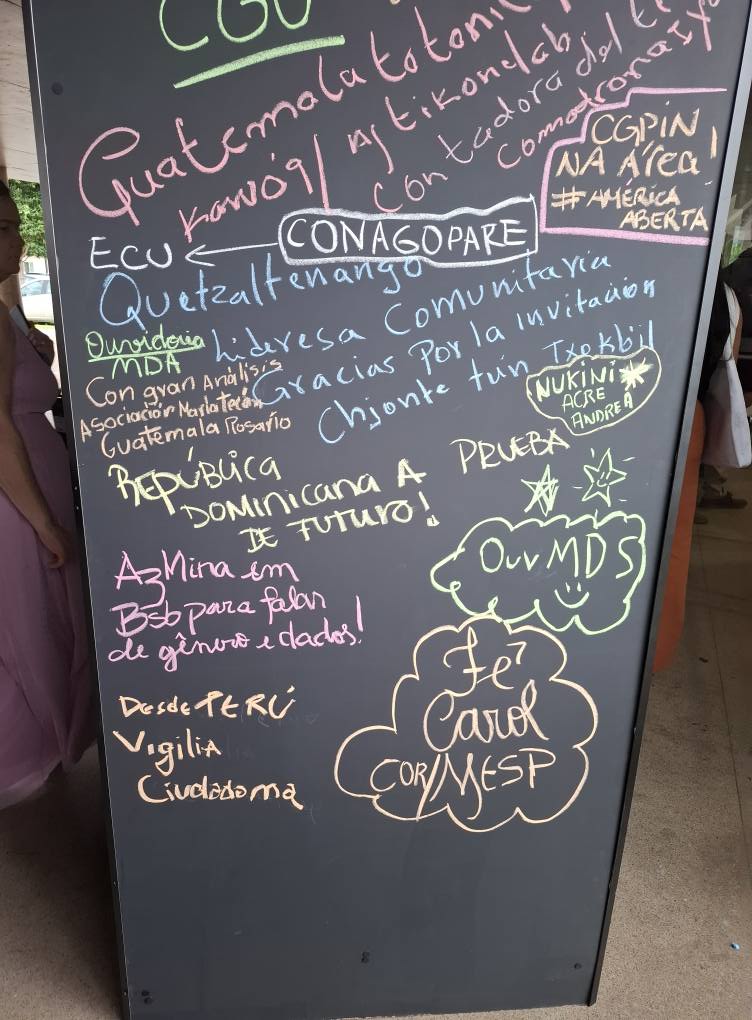 CGU
Guatemala totonic
Kawoq
Contadora del
CGPIN
NA ÁREA!
# AMÉRICA
ABERTA
ECU ← CONAGOPARE
Quetzaltenango
Lideresa Comunitaria
Gracias Por la invitación
Chjonte tun Txokbil
Ouvidoria
MDA
Con gran Análisis
Asociación María
Guatemala Rosario
NUKINI
ACRE
ANDREA
REPÚBLICA
DOMINICANA A
DE FUTURO!
PRUEBA
AzMina em
Bsb para falar
de gênero e dados!
Ouv MDS
Fe
Carol
COR/MESP
Desde PERÚ
Vigilia
Ciudadana